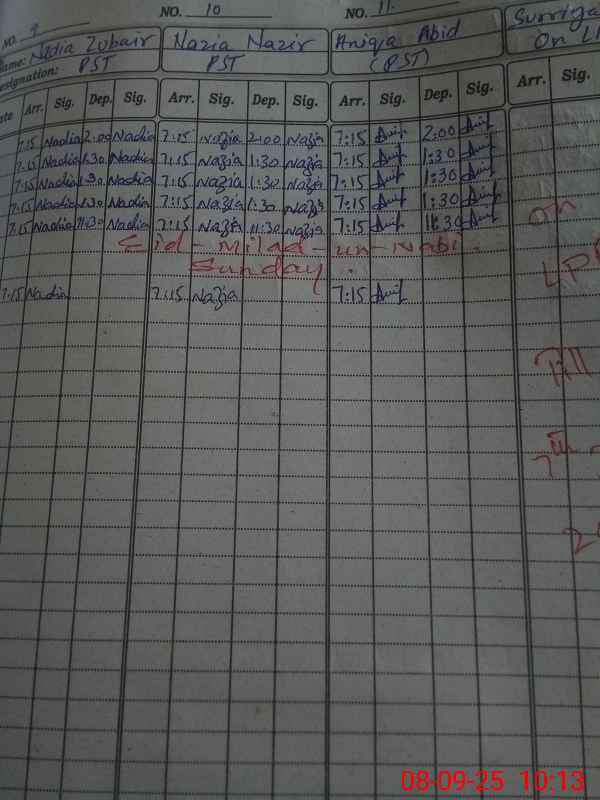 NO. 9 NO. 10 NO. 11
Name: Nadia Zubair Nazia Nazir Aniqa Abid
Designation: PST PST (PST) On
Arr. Sig. Dep. Sig. Arr. Sig. Dep. Sig. Arr. Sig. Dep. Sig. Arr. Sig.
7:15 Nadia 2:00 Nadia 7:15 Nazia 2:00 Nazia 7:15 2:00
7:15 Nadia 1:30 Nadia 7:15 Nazia 1:30 Nazia 7:15 1:30
7:15 Nadia 1:30 Nadia 7:15 Nazia 1:30 Nazia 7:15 1:30
7:15 Nadia 1:30 Nadia 7:15 Nazia 1:30 Nazia 7:15 1:30
7:15 Nadia 11:30 Nadia 7:15 Nazia 11:30 Nazia 7:15 11:30
on
Eid-Milad-un-Nabi.
Sunday.
7:15 Nadia 7:15 Nazia 7:15
Till
7th
08-09-25 10:13